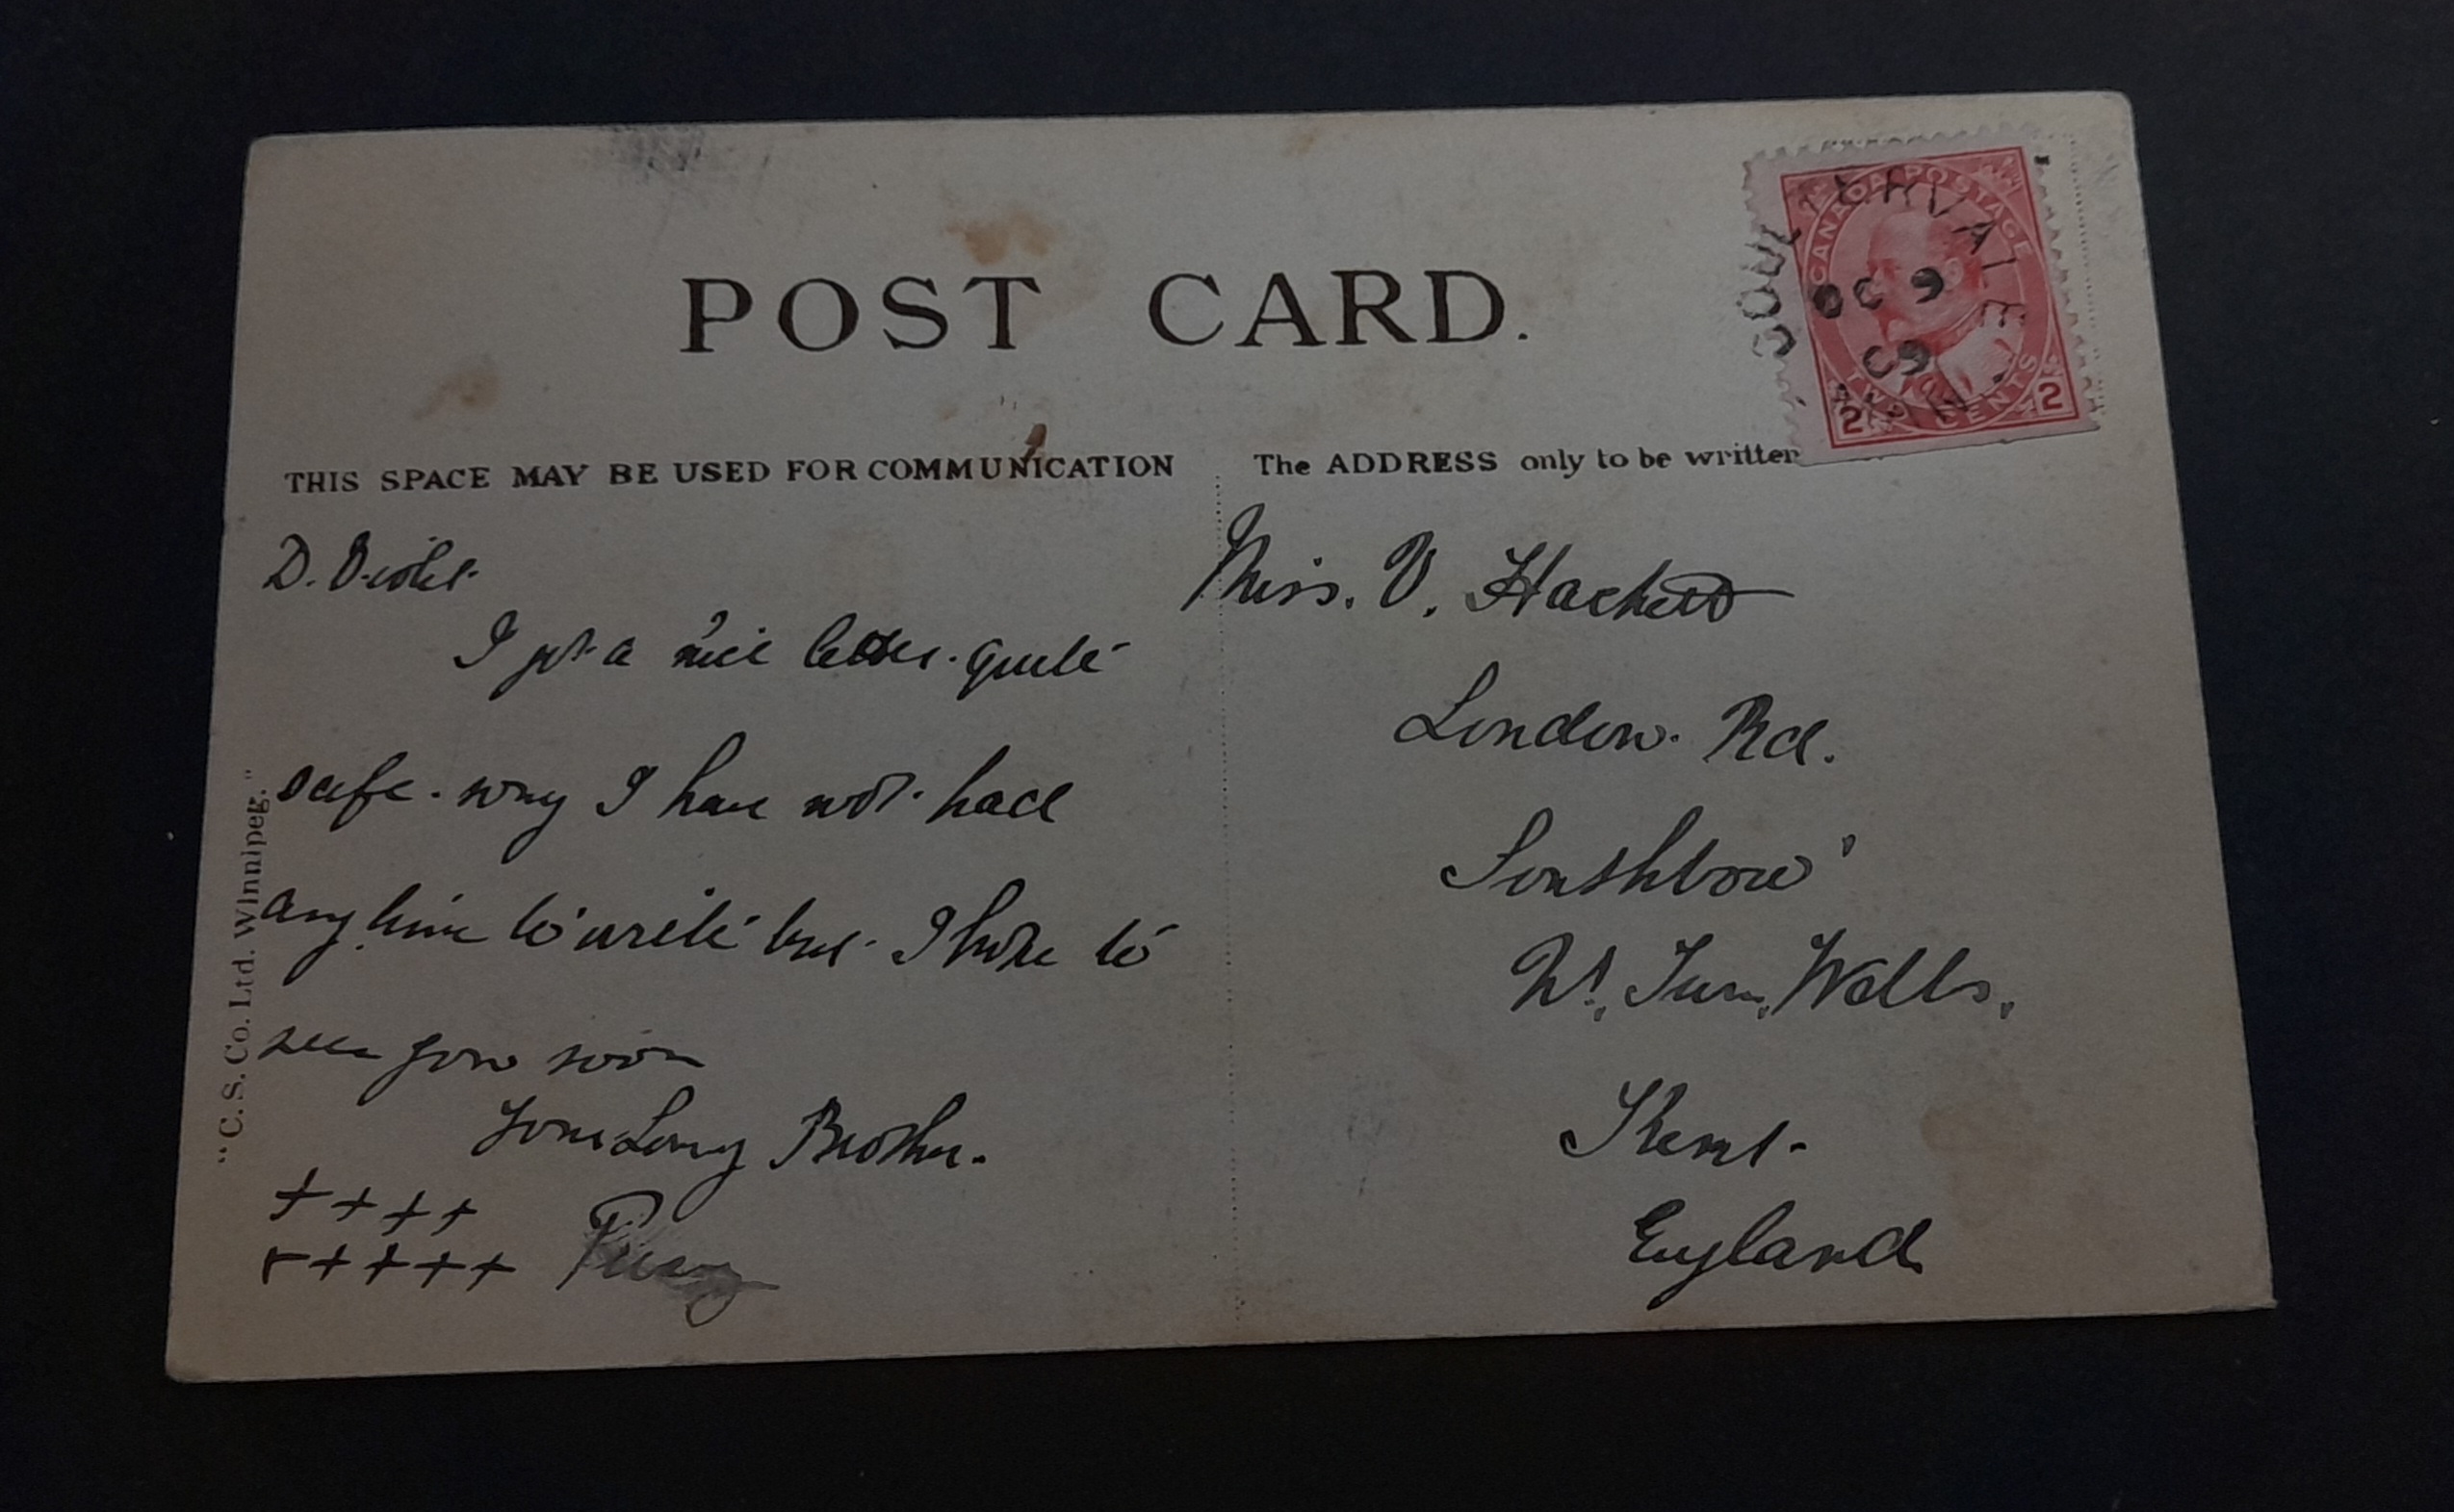 POST CARD.
CANADA POSTAGE
TWO CENTS
2 2
OC 9
09
THIS SPACE MAY BE USED FOR COMMUNICATION
The ADDRESS only to be written
D. Violet
I got a nice letter. quite
safe. way I have not had
any time to write but I hope to
see you soon
Your Loving Brother.
++++
+++++
Percy
Miss. V. Hackett
London. Rd.
Southboro'
Nr. Tun, Wells,
Kent.
England
"C. S. Co. Ltd. Winnipeg."